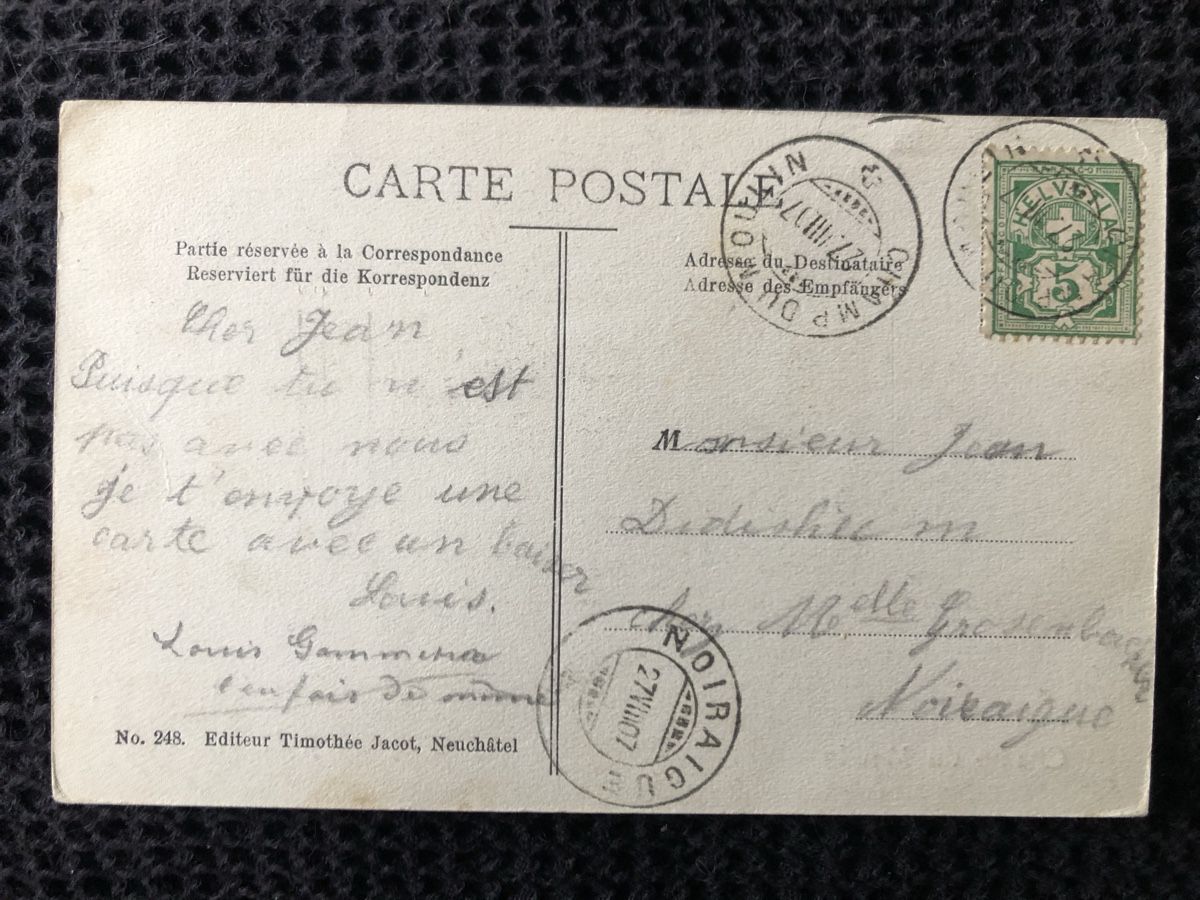 CARTE POSTALE
Partie réservée à la Correspondance
Reserviert für die Korrespondenz
Cher Jean
Puisque tu n'est
pas avec nous
je t'envoye une
carte avec un baiser
Louis.
Louis
No. 248. Editeur Timothée Jacot, Neuchâtel
Adresse du Destinataire
Adresse des Empfängers
CHAMP DU MOULIN
27 VIII 07
HELVETIA
5
Monsieur Jean
Didisheim
chez Melle Grosenbacher
Noiraigue
NOIRAIGUE
27 VIII 07